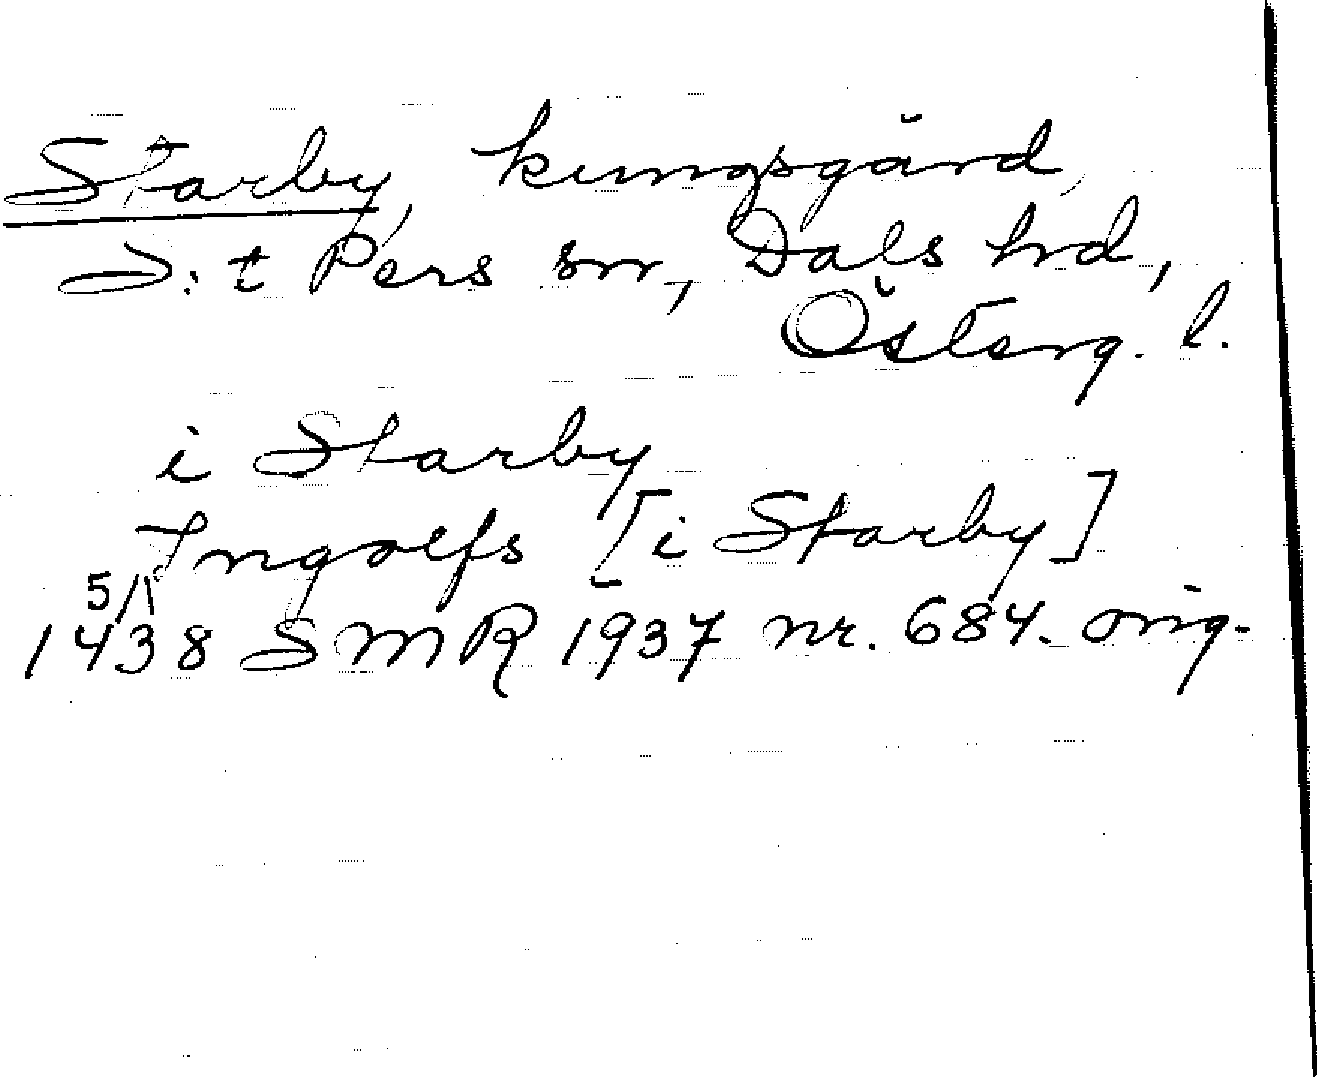 Starby, kungsgård,
S:t Pers sn, Dals hd,
Österg. l.
i Starby
Ingolfs [i Starby]
5/1
1438 SMR 1937 nr. 684. orig.